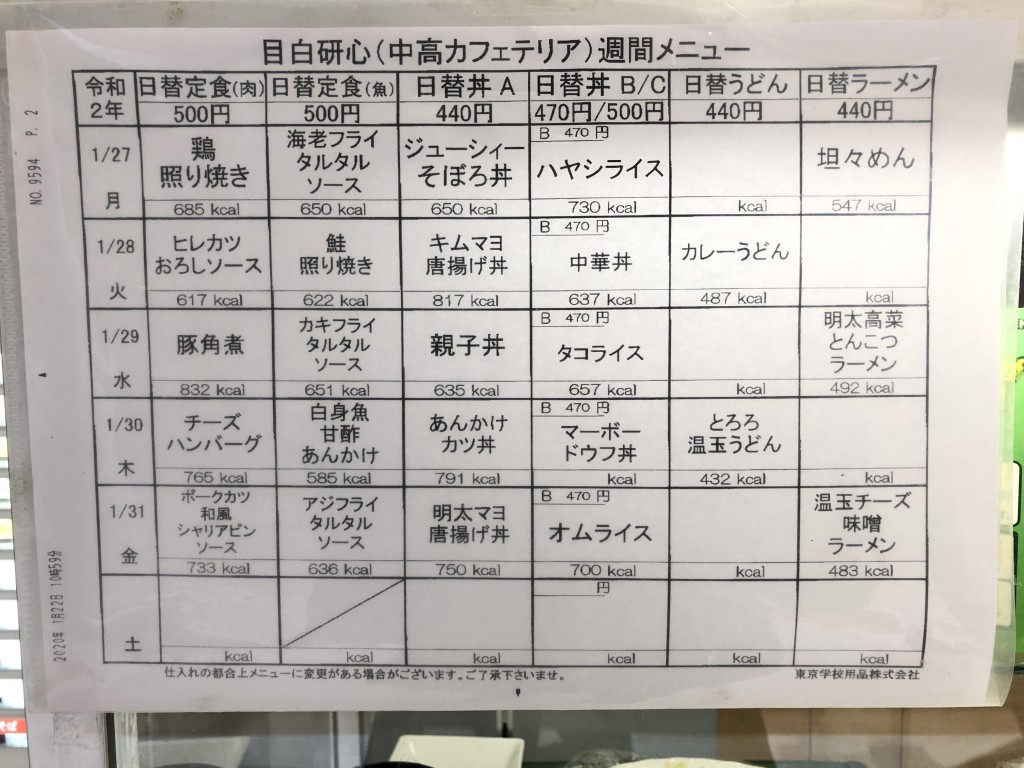 目白研心(中高カフェテリア)週間メニュー
令和
2年
日替定食(肉)
500円
日替定食(魚)
500円
日替丼 A
440円
日替丼 B/C
470円/500円
日替うどん
440円
日替ラーメン
440円
1/27
月
鶏
照り焼き
685 kcal
海老フライ
タルタル
ソース
650 kcal
ジューシィー
そぼろ丼
650 kcal
B 470 円
ハヤシライス
730 kcal
kcal
坦々めん
547 kcal
1/28
火
ヒレカツ
おろしソース
617 kcal
鮭
照り焼き
622 kcal
キムマヨ
唐揚げ丼
817 kcal
B 470 円
中華丼
637 kcal
カレーうどん
487 kcal
kcal
1/29
水
豚角煮
832 kcal
カキフライ
タルタル
ソース
651 kcal
親子丼
635 kcal
B 470 円
タコライス
657 kcal
kcal
明太高菜
とんこつ
ラーメン
492 kcal
1/30
木
チーズ
ハンバーグ
765 kcal
白身魚
甘酢
あんかけ
585 kcal
あんかけ
カツ丼
791 kcal
B 470 円
マーボー
ドウフ丼
kcal
とろろ
温玉うどん
432 kcal
kcal
1/31
金
ポークカツ
和風
シャリアピン
ソース
733 kcal
アジフライ
タルタル
ソース
636 kcal
明太マヨ
唐揚げ丼
750 kcal
B 470 円
オムライス
700 kcal
kcal
温玉チーズ
味噌
ラーメン
483 kcal
土
kcal
kcal
kcal
円
kcal
kcal
kcal
仕入れの都合上メニューに変更がある場合がございます。ご了承下さいませ。
東京学校用品株式会社
NO. 9594 P. 2
2020年 1月22日 10時59分
そば